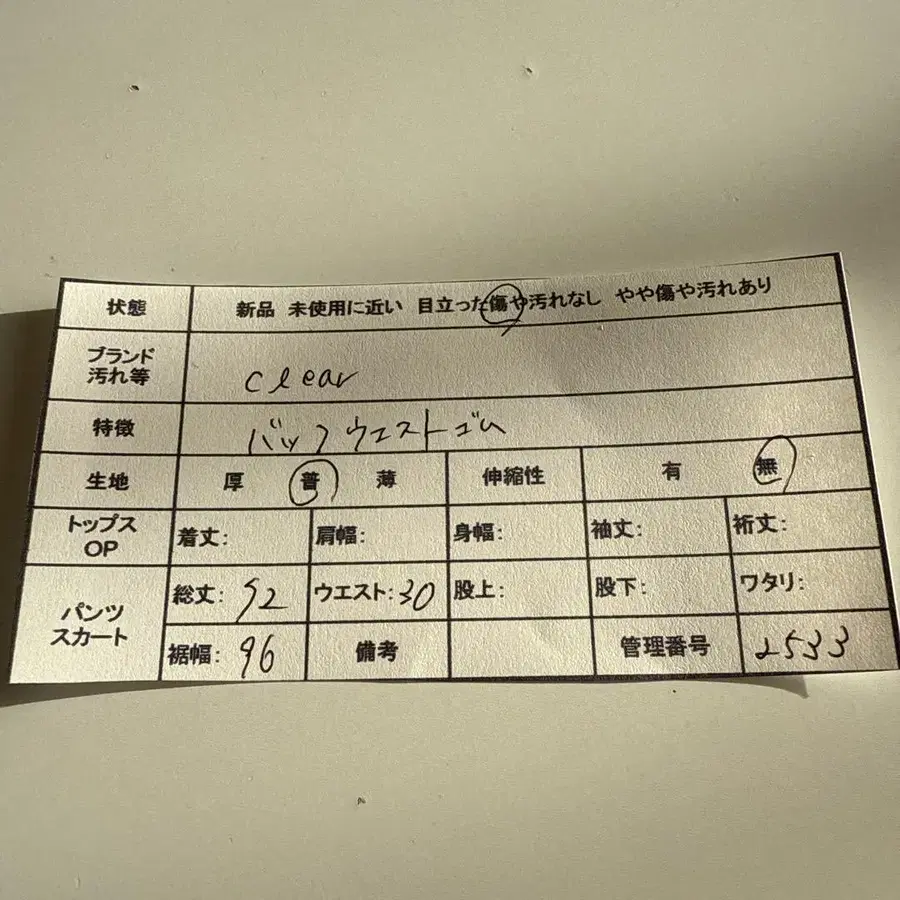 状態 新品 未使用に近い 目立った傷や汚れなし やや傷や汚れあり
ブランド
汚れ等
clear
特徴 バックウエストゴム
生地 厚 普 薄 伸縮性 有 無
トップス
OP
着丈: 肩幅: 身幅: 袖丈: 裄丈:
パンツ
スカート
総丈: 92 ウエスト: 30 股上: 股下: ワタリ:
裾幅: 96 備考 管理番号 2533